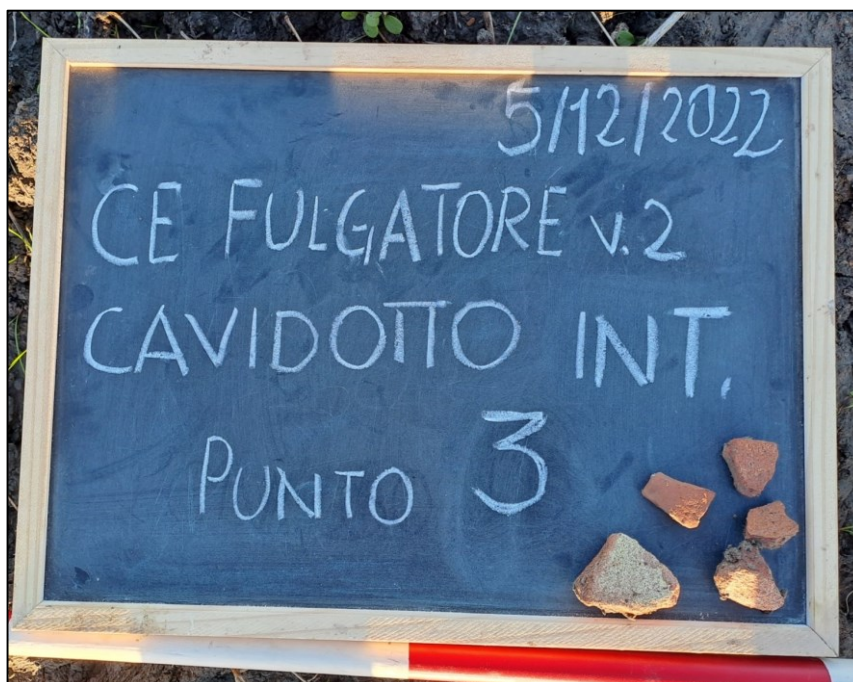 5/12/2022
CE FULGATORE V.2
CAVIDOTTO INT.
PUNTO 3